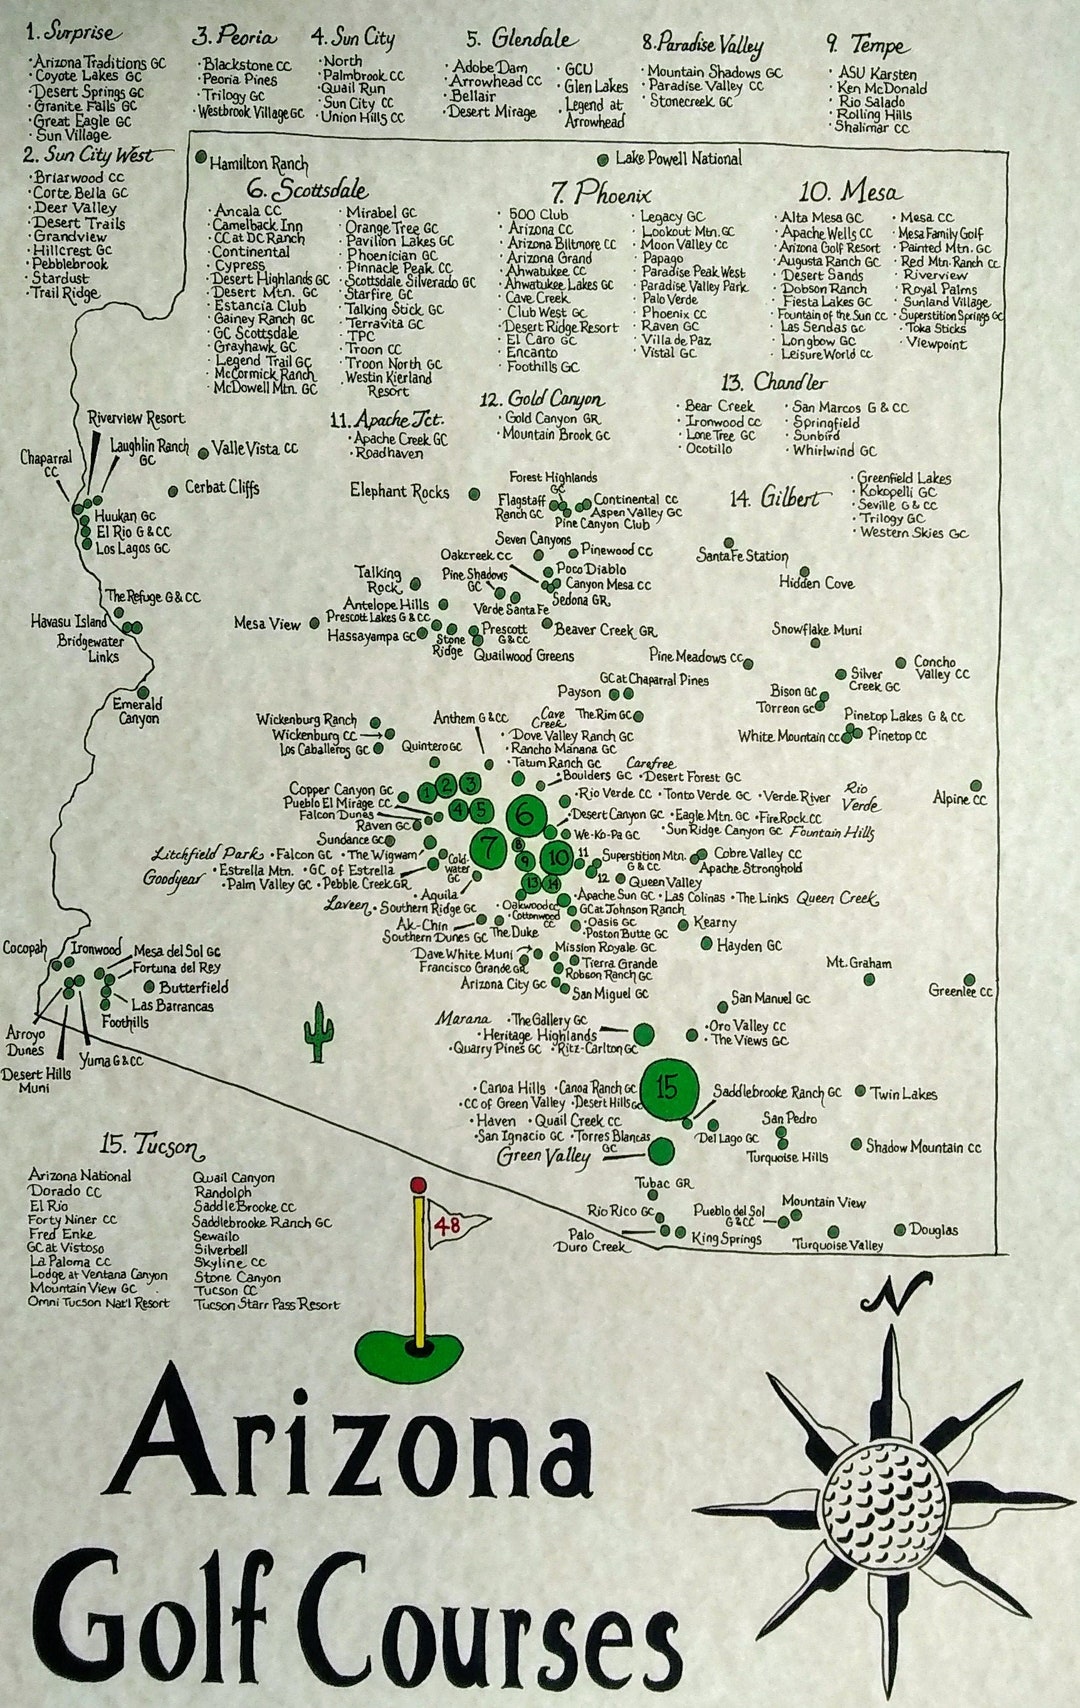 1. Surprise
· Arizona Traditions GC
· Coyote Lakes GC
· Desert Springs GC
· Granite Falls GC
· Great Eagle GC
· Sun Village
2. Sun City West
· Briarwood CC
· Corte Bella GC
· Deer Valley
· Desert Trails
· Grandview
· Hillcrest GC
· Pebblebrook
· Stardust
· Trail Ridge
3. Peoria
· Blackstone CC
· Peoria Pines
· Trilogy GC
· Westbrook Village GC
4. Sun City
· North
· Palmbrook CC
· Quail Run
· Sun City CC
· Union Hills CC
5. Glendale
· Adobe Dam
· Arrowhead CC
· Bellair
· Desert Mirage
· GCU
· Glen Lakes
· Legend at
Arrowhead
8. Paradise Valley
· Mountain Shadows GC
· Paradise Valley CC
· Stonecreek GC
9. Tempe
· ASU Karsten
· Ken McDonald
· Rio Salado
· Rolling Hills
· Shalimar CC
Hamilton Ranch
Lake Powell National
6. Scottsdale
· Ancala CC
· Camelback Inn
· CC at DC Ranch
· Continental
· Cypress
· Desert Highlands GC
· Desert Mtn. GC
· Estancia Club
· Gainey Ranch GC
· GC Scottsdale
· Grayhawk GC
· Legend Trail GC
· McCormick Ranch
· McDowell Mtn. GC
· Mirabel GC
· Orange Tree GC
· Pavilion Lakes GC
· Phoenician GC
· Pinnacle Peak CC
· Scottsdale Silverado GC
· Starfire GC
· Talking Stick GC
· Terravita GC
· TPC
· Troon CC
· Troon North GC
· Westin Kierland
Resort
7. Phoenix
· 500 Club
· Arizona CC
· Arizona Biltmore CC
· Arizona Grand
· Ahwatukee CC
· Ahwatukee Lakes GC
· Cave Creek
· Club West GC
· Desert Ridge Resort
· El Caro GC
· Encanto
· Foothills GC
· Legacy GC
· Lookout Mtn. GC
· Moon Valley CC
· Papago
· Paradise Peak West
· Paradise Valley Park
· Palo Verde
· Phoenix CC
· Raven GC
· Villa de Paz
· Vistal GC
10. Mesa
· Alta Mesa GC
· Apache Wells CC
· Arizona Golf Resort
· Augusta Ranch GC
· Desert Sands
· Dobson Ranch
· Fiesta Lakes GC
· Fountain of the Sun CC
· Las Sendas GC
· Longbow GC
· Leisure World CC
· Mesa CC
· Mesa Family Golf
· Painted Mtn. GC
· Red Mtn. Ranch CC
· Riverview
· Royal Palms
· Sunland Village
· Superstition Springs GC
· Toka Sticks
· Viewpoint
11. Apache Jct.
· Apache Creek GC
· Roadhaven
12. Gold Canyon
· Gold Canyon GR
· Mountain Brook GC
13. Chandler
· Bear Creek
· Ironwood CC
· Lone Tree GC
· Ocotillo
· San Marcos G & CC
· Springfield
· Sunbird
· Whirlwind GC
14. Gilbert
· Greenfield Lakes
· Kokopelli GC
· Seville G & CC
· Trilogy GC
· Western Skies GC
Riverview Resort
Laughlin Ranch
GC
Chaparral
CC
Valle Vista CC
Cerbat Cliffs
Huukan GC
El Rio G & CC
Los Lagos GC
Elephant Rocks
Forest Highlands
GC
Flagstaff
Ranch GC
Continental CC
Aspen Valley GC
Pine Canyon Club
Seven Canyons
Oakcreek CC
Pinewood CC
Poco Diablo
Canyon Mesa CC
Sedona GR
Santa Fe Station
Hidden Cove
Talking
Rock
Pine Shadows
GC
Verde Santa Fe
The Refuge G & CC
Havasu Island
Bridgewater
Links
Mesa View
Antelope Hills
Prescott Lakes G & CC
Hassayampa GC
Stone
Ridge
Prescott
G & CC
Quailwood Greens
Beaver Creek GR
Snowflake Muni
Pine Meadows CC
Silver
Creek GC
Concho
Valley CC
Emerald
Canyon
GC at Chaparral Pines
Payson
The Rim GC
Bison GC
Torreon GC
Pinetop Lakes G & CC
White Mountain CC
Pinetop CC
Wickenburg Ranch
Wickenburg CC
Los Caballeros GC
Anthem G & CC
Quintero GC
Cave
Creek
· Dove Valley Ranch GC
· Rancho Manana GC
· Tatum Ranch GC
Carefree
· Boulders GC · Desert Forest GC
Copper Canyon GC
Pueblo El Mirage CC
Falcon Dunes
Raven GC
Sundance GC
1
2
3
4
5
6
7
8
9
10
11
12
13
14
· Rio Verde CC · Tonto Verde GC · Verde River
Rio
Verde
Alpine CC
· Desert Canyon GC · Eagle Mtn. GC · FireRock CC
· We-Ko-Pa GC
· Sun Ridge Canyon GC
Fountain Hills
Litchfield Park
· Falcon GC · The Wigwam
Goodyear
· Estrella Mtn. · GC of Estrella
· Palm Valley GC · Pebble Creek GR
Cold-
water
GC
· Aguila
Laveen
· Southern Ridge GC
Superstition Mtn.
G & CC
Cobre Valley CC
Apache Stronghold
Queen Valley
· Apache Sun GC · Las Colinas · The Links
Queen Creek
· Oakwood CC
· Cottonwood
CC
GC at Johnson Ranch
· Oasis GC
· Poston Butte GC
Ak-Chin
Southern Dunes GC
The Duke
Kearny
Hayden GC
Dave White Muni
Francisco Grande GR
Arizona City GC
Mission Royale GC
Tierra Grande
Robson Ranch GC
San Miguel GC
Mt. Graham
Greenlee CC
San Manuel GC
Cocopah
Ironwood
Mesa del Sol GC
Fortuna del Rey
Butterfield
Las Barrancas
Foothills
Arroyo
Dunes
Yuma G & CC
Desert Hills
Muni
Marana
· The Gallery GC
· Heritage Highlands
· Quarry Pines GC · Ritz-Carlton GC
· Oro Valley CC
· The Views GC
15
· Canoa Hills · Canoa Ranch GC
· CC of Green Valley · Desert Hills GC
· Haven · Quail Creek CC
· San Ignacio GC · Torres Blancas
GC
Green Valley
Saddlebrooke Ranch GC
Twin Lakes
Del Lago GC
San Pedro
Turquoise Hills
Shadow Mountain CC
Tubac GR
Rio Rico GC
Palo
Duro Creek
King Springs
Pueblo del Sol
G & CC
Mountain View
Turquoise Valley
Douglas
15. Tucson
Arizona National
Dorado CC
El Rio
Forty Niner CC
Fred Enke
GC at Vistoso
La Paloma CC
Lodge at Ventana Canyon
Mountain View GC
Omni Tucson Nat'l Resort
Quail Canyon
Randolph
SaddleBrooke CC
Saddlebrooke Ranch GC
Sewailo
Silverbell
Skyline CC
Stone Canyon
Tucson CC
Tucson Starr Pass Resort
48
N
Arizona
Golf Courses